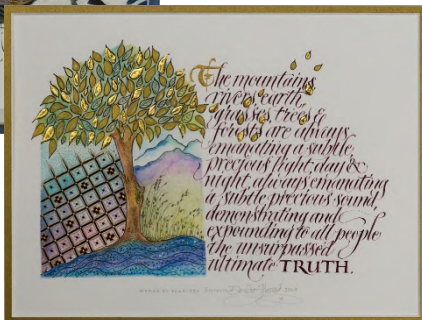 The mountains,
rivers, earth,
grasses, trees &
forests are always
emanating a subtle,
precious light, day &
night, always emanating
a subtle precious sound,
demonstrating and
expounding to all people
the unsurpassed
ultimate TRUTH.